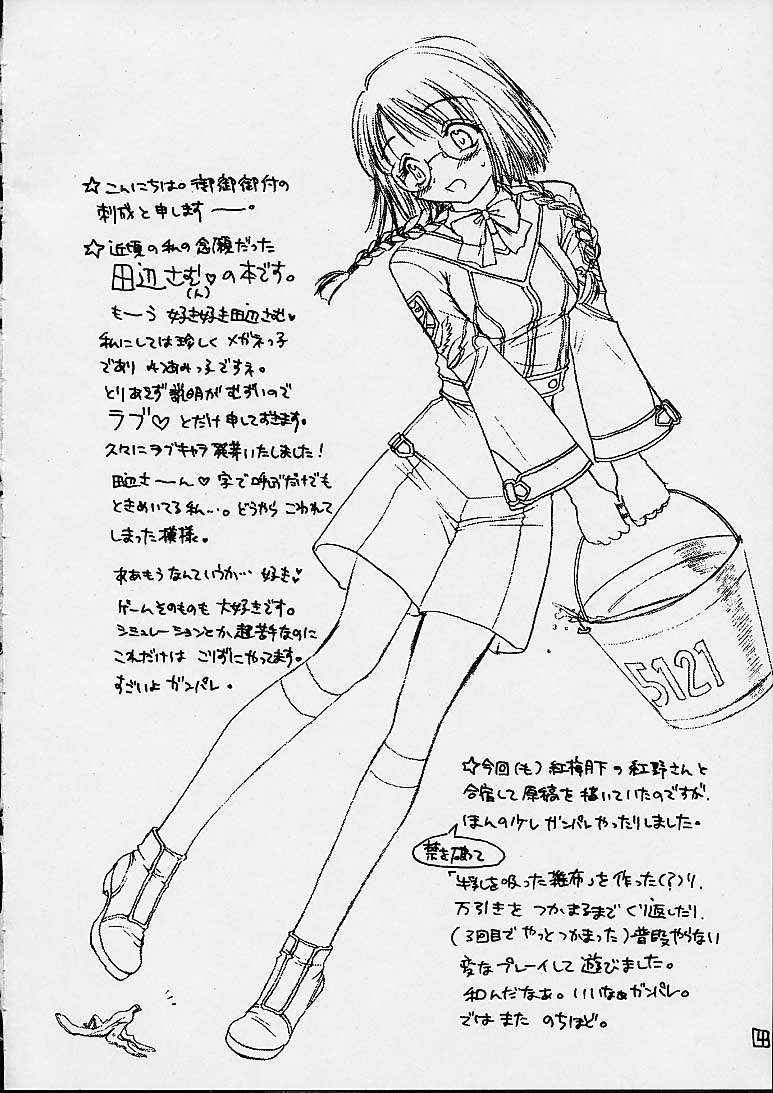 ☆こんにちは。御御御付の
刺成と申します――。
☆近頃の私の念願だった
田辺さむ♡の本です。
(ん)
もーう 好き好き田辺さむ♡
私にしては珍しくメガネっ子
であり みつあみっ子ですネ。
とりあえず説明がむずいので
ラブ♡とだけ申しておきます。
久々にラブキャラ発芽いたしました！
田辺さーん♡字で呼ぶだけでも
ときめいてる私…。どうやら こわれて
しまった模様。
ああもうなんていうか… 好き♡
ゲームそのものも 大好きです。
シミュレーションとか超苦手なのに
これだけは こりずにやってます。
すごいよ ガンパレ。
5121
☆今回(も) 紅梅月下の紅野さんと
合宿して原稿を描いていたのですが、
ほんの少し ガンパレやったりしました。
禁を破って
「牛乳を吸った雑布」を作った(？)り、
万引きを つかまるまで くり返したり、
(3回目で やっとつかまった)普段やらない
変なプレイして 遊びました。
和んだなぁ。いいなぁガンパレ。
では また のちほど。